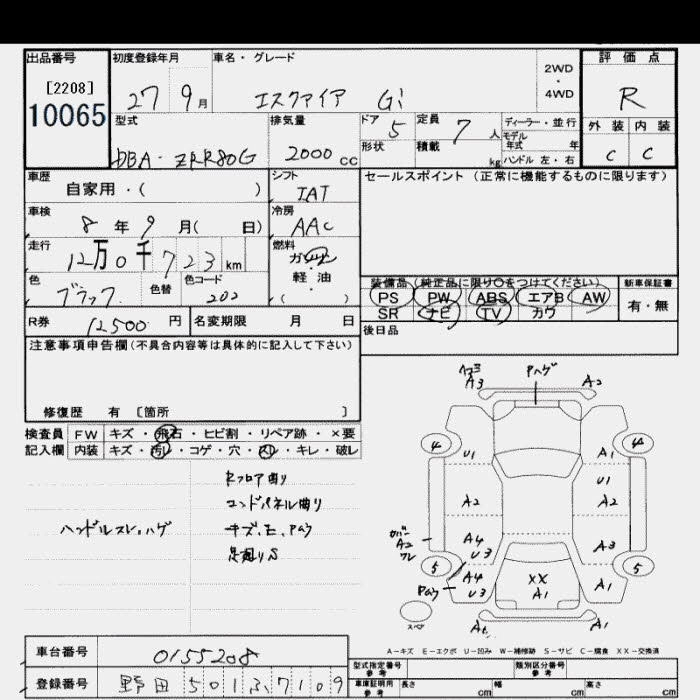 出品番号 初度登録年月 車名・グレード 評価点
[2208] 2WD
10065 27 9月 エスクァイア Gi ・ R
4WD
型式 排気量 ドア 5 定員 7 人 ディーラー・並行 外装 内装
モデル年式 年
DBA-ZRR80G 2000cc 形状 積載 kg ハンドル 左・右 C C
車歴 シフト セールスポイント (正常に機能するものに限ります)
自家用・( ) IAT
車検 冷房
8年9月( 日) AAC
走行 燃料
12万0千723km ガソリン
・
軽油
色 色替 色コード ( )
ブラック 202
装備品 (純正品に限り〇をつけてください) 新車保証書
PS PW ABS エアB AW 有・無
SR ナビ TV カワ
R券 12500円 名変期限 月 日 後日品
注意事項申告欄(不具合内容等は具体的に記入して下さい)
修復歴 有 [箇所 ]
検査員 FW キズ・飛石・ヒビ割・リペア跡・×要
記入欄 内装 キズ・汚レ・コゲ・穴・スレ・キレ・破レ
Rフロア曲り
エンドパネル曲り
ハンドルスレ、ハゲ キズ、E、Pハゥ
足廻りS
A3 Pハゲ A2
4 U1 A1 4
U1
A2 A2
カバー
A2
ワレ
A4
U3
A3
5 A4
U3
XX
A1
A1 5
Pハゥ
スペア
A-キズ E-エクボ U-凹み W-補修跡 S-サビ C-腐食 XX-交換済
車台番号 0155208
登録番号 野田 501 ふ 7109
型式指定番号 参考 類別区分番号 参考
車庫証明用 参考 長さ cm 幅 cm 高さ cm